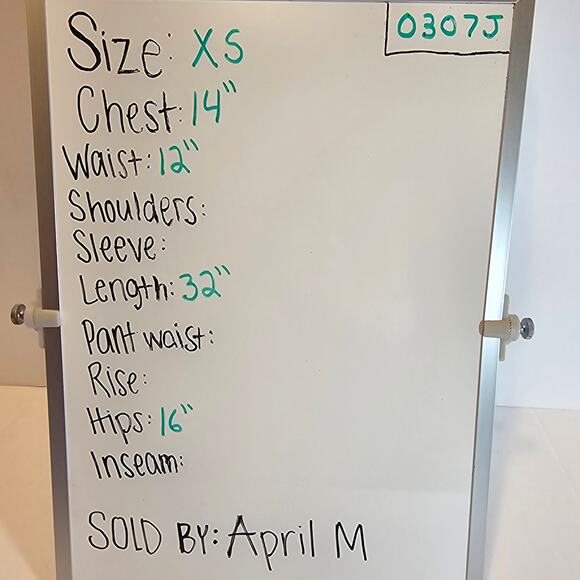 0307J
Size: XS
Chest: 14"
Waist: 12"
Shoulders:
Sleeve:
Length: 32"
Pant waist:
Rise:
Hips: 16"
Inseam:
SOLD BY: April M